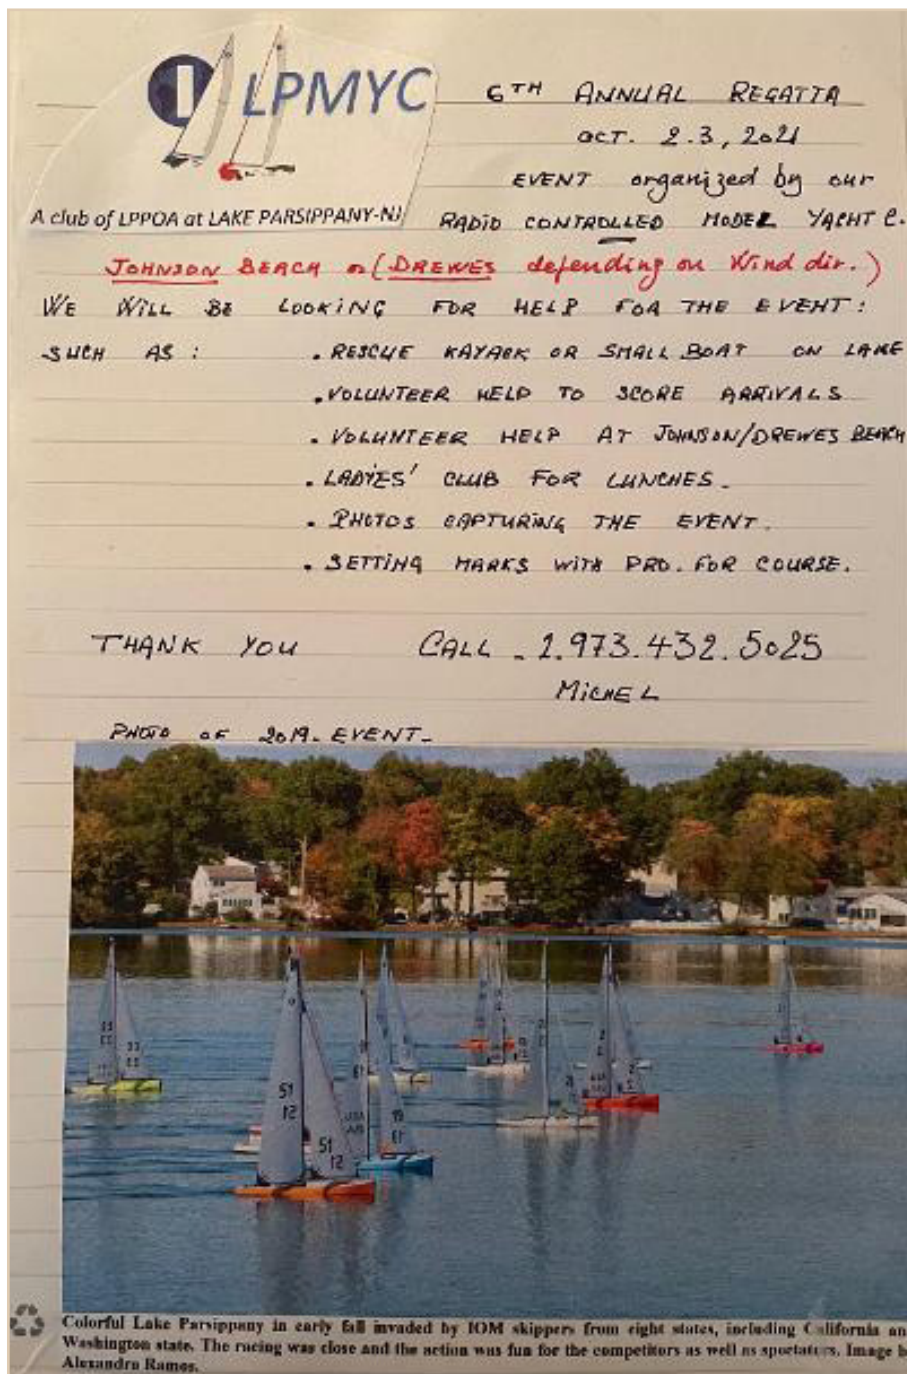 LPMYC
A club of LPPOA at LAKE PARSIPPANY-NJ
6TH ANNUAL REGATTA
OCT. 2.3, 2021
EVENT organized by our
RADIO CONTROLLED MODEL YACHT C.
JOHNSON BEACH or (DREWES depending on Wind dir.)
WE WILL BE LOOKING FOR HELP FOR THE EVENT:
SUCH AS : . RESCUE KAYACK OR SMALL BOAT ON LAKE
. VOLUNTEER HELP TO SCORE ARRIVALS
. VOLUNTEER HELP AT JOHNSON/DREWES BEACH
. LADYES' CLUB FOR LUNCHES.
. PHOTOS CAPTURING THE EVENT.
. SETTING MARKS WITH PRO. FOR COURSE.
THANK YOU CALL - 1.973.432.5025
MICHEL
PHOTO OF 2019. EVENT-
51
51
51
51
Colorful Lake Parsippany in early fall invaded by IOM skippers from eight states, including California an
Washington state. The racing was close and the action was fun for the competitors as well as spectators. Image b
Alexandra Ramos.